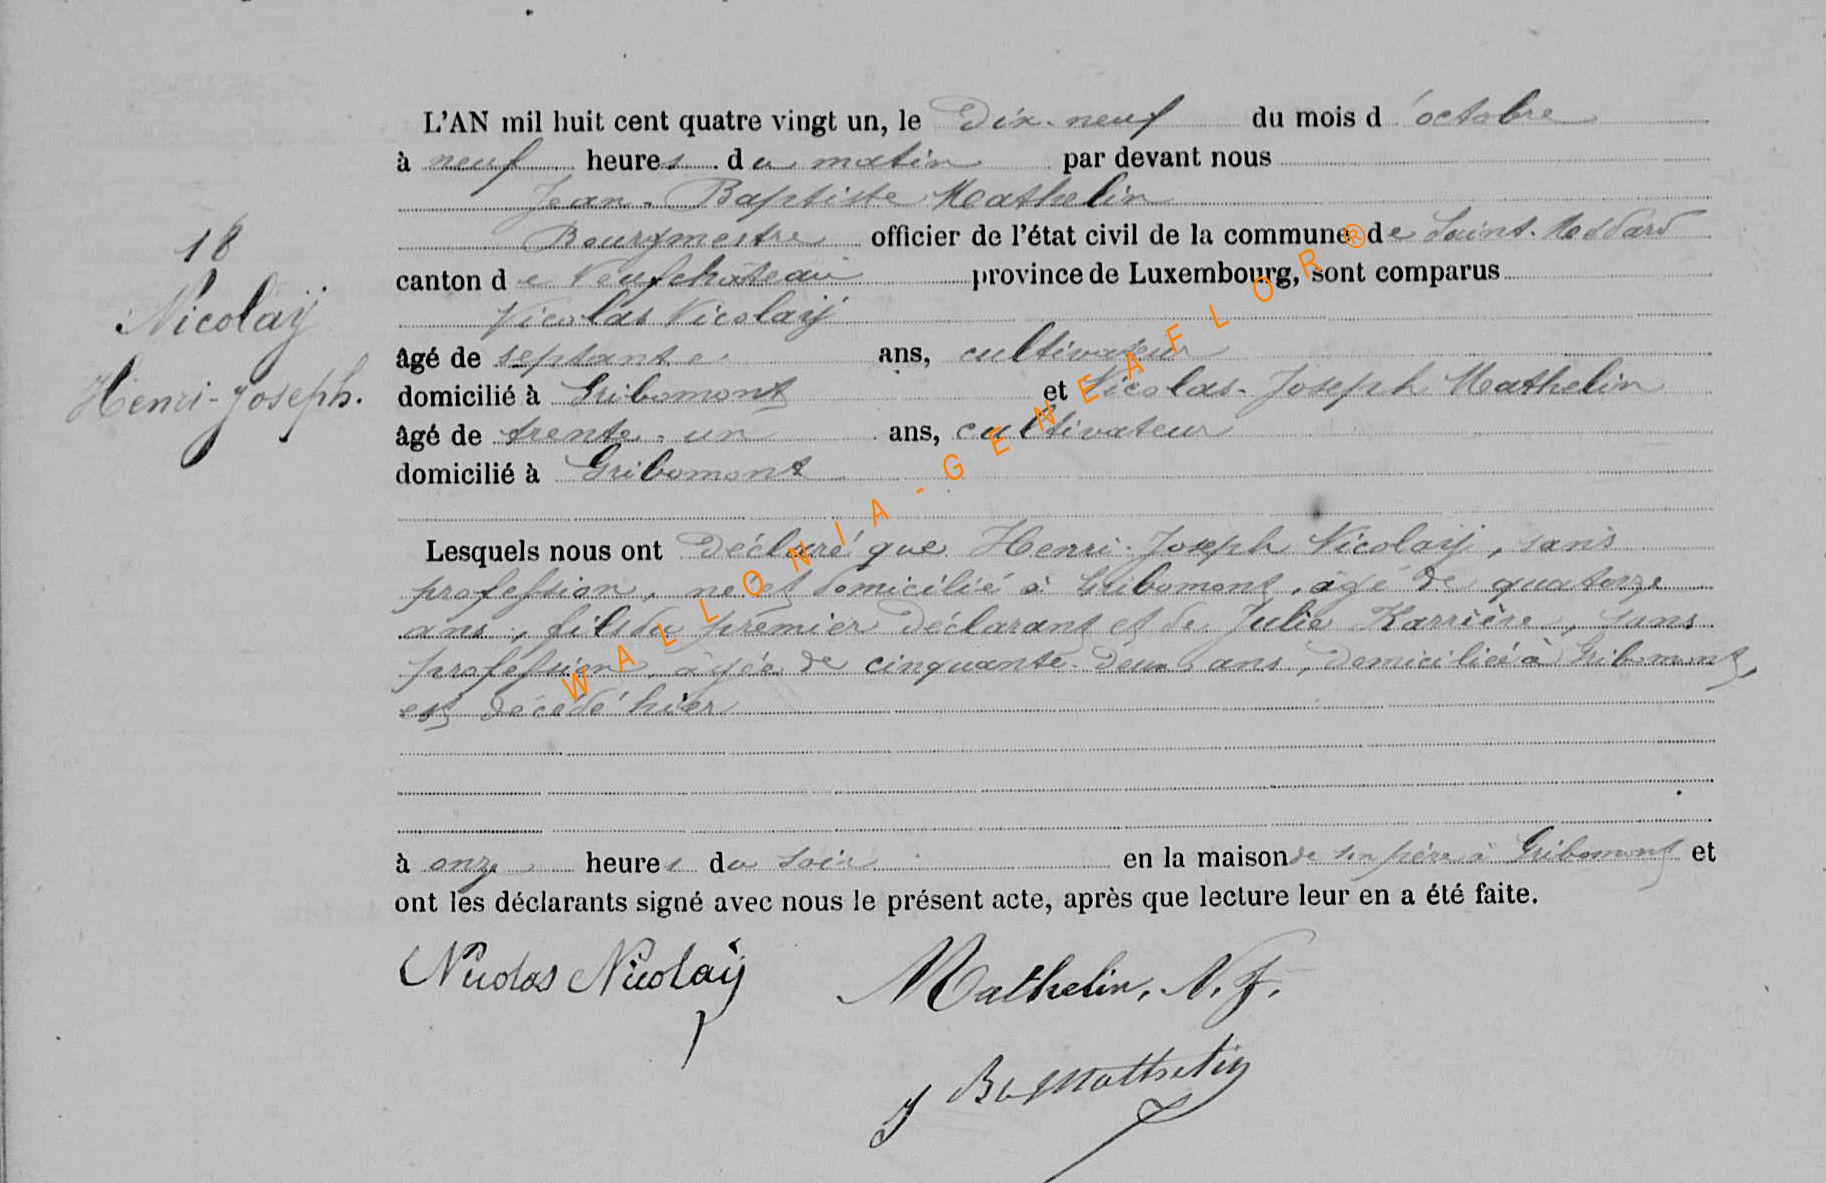 L'AN mil huit cent quatre vingt un, le Dix-neuf du mois d'octobre
à neuf heures du matin par devant nous
Jean-Baptiste Mathelin
Bourgmestre officier de l'état civil de la commune de Saint-Meddard
canton de Neufchâteau province de Luxembourg, sont comparus
Nicolas Nicolaÿ
âgé de septante ans, cultivateur
domicilié à Gribomont et Nicolas-Joseph Mathelin
âgé de trente-un ans, cultivateur
domicilié à Gribomont
18
Nicolaÿ
Henri-Joseph.
Lesquels nous ont déclaré que Henri-Joseph Nicolaÿ, sans
profession, né et domicilié à Gribomont, âgé de quatorze
ans, fils du premier déclarant et de Julie Karrière, sans
profession, âgée de cinquante-deux ans, domiciliée à Gribomont,
est décédé hier
à onze heures du soir en la maison de son père à Gribomont et
ont les déclarants signé avec nous le présent acte, après que lecture leur en a été faite.
Nicolas Nicolaÿ Mathelin, N. J.
J Bte Mathelin
WALLONIA-GENEAFLOR®